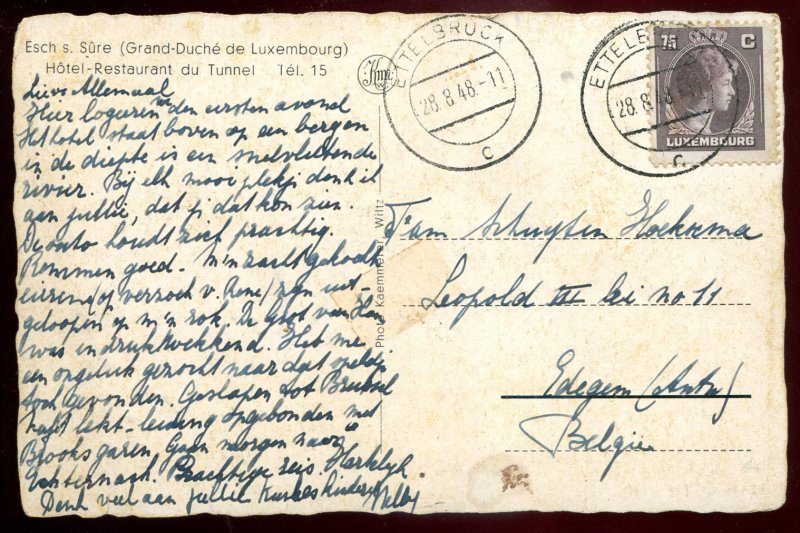 Esch s. Sûre (Grand-Duché de Luxembourg)
Hôtel-Restaurant du Tunnel Tél. 15
Lieve Allemaal
Hier logeren we den eersten avond
Het hotel staat boven op een bergen
in de diepte is een snelvlietende
rivier. Bij elk mooi plekje denk ik
aan jullie, dat je dat kon zien.
De auto houdt zich prachtig.
Remmen goed. M'n zacht gekookt
eieren (op verzoek v. Rene) zijn uit-
geloopen op m'n rok. De grot van Han
was indrukwekkend. Het me
een ongeluk gezocht naar dat
toch gevonden. Geslapen tot Brussel
lekt - leiding opgebonden met
Brooks garen. Gaan morgen naar
Echternach. Prachtige reis. Hartelijk
Denk veel aan jullie
ETTELBRUCK
28.8.48.-11
C
ETTELBRUCK
28.8.48.-11
C
75 C
LUXEMBOURG
Photo Kaemmerer, Wiltz
Fam Schuyten Hoekxema
Leopold III lei no 11
Edegem (Antw)
Belgie